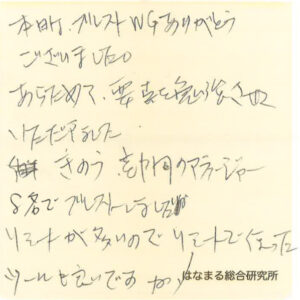 本日は、ブレストWGありがとう
ございました。
あらためて、要素を勉強させて
いただきました
きのう 室内のマネージャー
8名でブレストしました
リモートが多いのでリモートで使った
ツールも良いですが、
はなまる総合研究所